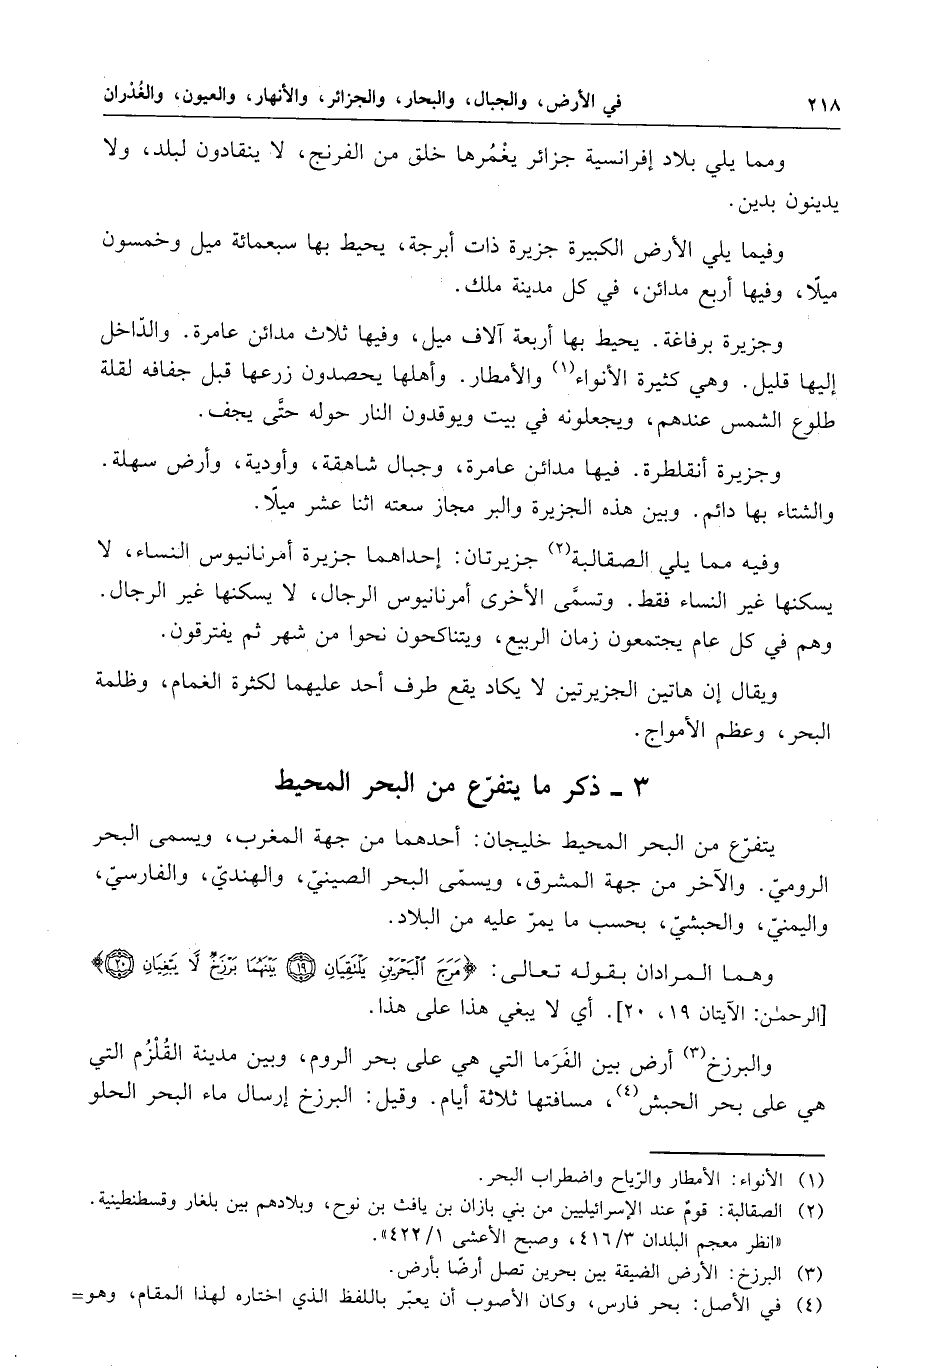 ٢١٨ في الأرض، والجبال، والبحار، والجزائر، والأنهار، والعيون، والغُدْران
ومما يلي بلاد إفرانسية جزائر يغْمُرها خلق من الفرنج، لا ينقادون لبلد، ولا
يدينون بدين.
وفيما يلي الأرض الكبيرة جزيرة ذات أبرجة، يحيط بها سبعمائة ميل وخمسون
ميلًا، وفيها أربع مدائن، في كل مدينة ملك.
وجزيرة برفاغة. يحيط بها أربعة آلاف ميل، وفيها ثلاث مدائن عامرة. والدّاخل
إليها قليل. وهي كثيرة الأنواء(١) والأمطار. وأهلها يحصدون زرعها قبل جفافه لقلة
طلوع الشمس عندهم، ويجعلونه في بيت ويوقدون النار حوله حتَّى يجف.
وجزيرة أنقلطرة. فيها مدائن عامرة، وجبال شاهقة، وأودية، وأرض سهلة.
والشتاء بها دائم. وبين هذه الجزيرة والبر مجاز سعته اثنا عشر ميلًا.
وفيه مما يلي الصقالبة(٢) جزيرتان: إحداهما جزيرة أمرنانيوس النساء، لا
يسكنها غير النساء فقط. وتسمَّى الأخرى أمرنانيوس الرجال، لا يسكنها غير الرجال.
وهم في كل عام يجتمعون زمان الربيع، ويتناكحون نحوا من شهر ثم يفترقون.
ويقال إن هاتين الجزيرتين لا يكاد يقع طرف أحد عليهما لكثرة الغمام، وظلمة
البحر، وعظم الأمواج.
٣ ـ ذكر ما يتفرّع من البحر المحيط
يتفرّع من البحر المحيط خليجان: أحدهما من جهة المغرب، ويسمى البحر
الروميّ. والآخر من جهة المشرق، ويسمّى البحر الصينيّ، والهنديّ، والفارسيّ،
واليمنيّ، والحبشيّ، بحسب ما يمرّ عليه من البلاد.
وهما المرادان بقوله تعالى: ﴿مَرَجَ ٱلْبَحْرَيْنِ يَلْتَقِيَانِ ۝١٩ بَيْنَهُمَا بَرْزَخٌ لَّا يَبْغِيَانِ ۝٢٠﴾
[الرحمـٰن: الآيتان ١٩، ٢٠]. أي لا يبغي هذا على هذا.
والبرزخ(٣) أرض بين الفَرَما التي هي على بحر الروم، وبين مدينة القُلْزُم التي
هي على بحر الحبش(٤)، مسافتها ثلاثة أيام. وقيل: البرزخ إرسال ماء البحر الحلو
(١) الأنواء: الأمطار والرّياح واضطراب البحر.
(٢) الصقالبة: قومٌ عند الإسرائيليين من بني بازان بن يافث بن نوح، وبلادهم بين بلغار وقسطنطينية.
«انظر معجم البلدان ٣/ ٤١٦، وصبح الأعشى ١/ ٤٢٢».
(٣) البرزخ: الأرض الضيقة بين بحرين تصل أرضًا بأرض.
(٤) في الأصل: بحر فارس، وكان الأصوب أن يعبّر باللفظ الذي اختاره لهذا المقام، وهو=